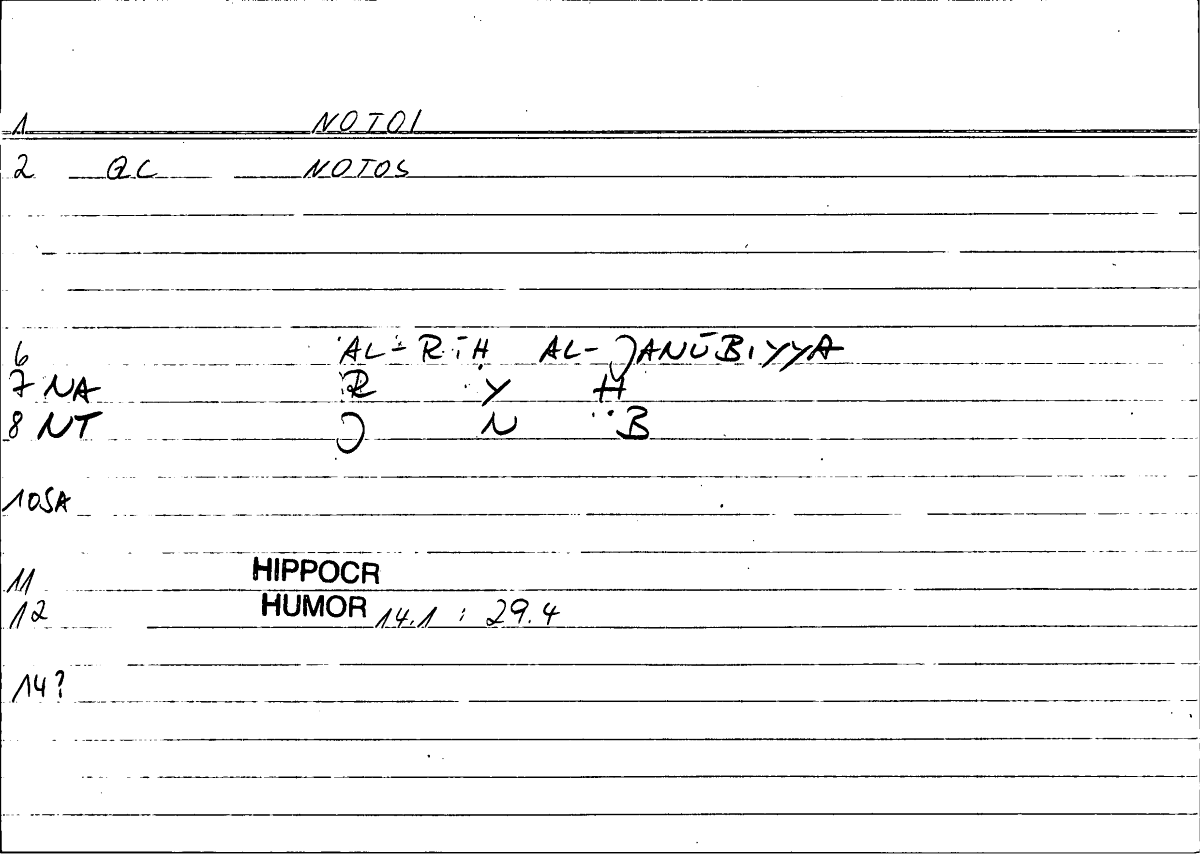 1 NOTOI
2 QC NOTOS
6 AL-RĪH AL-JANŪBIYYA
7 NA R Y H
8 NT J N B
10SA
11 HIPPOCR
12 HUMOR 14.1 : 29.4
14?